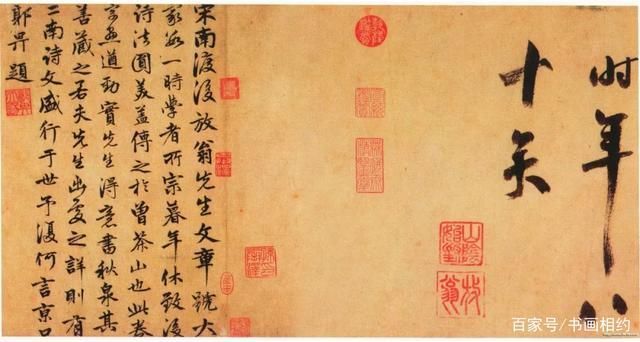 时年八
十矣
山陰始封
放翁
宋南渡後放翁先生文章號大
家數一時學者所宗暮年休致後
詩法圓美盖傳之於曾茶山也此卷
字畫遒勁實先生得意書秋泉其
善藏之若夫先生出處之詳則有
二南诗文盛行于世予復何言京口
郭畀題
百家号/书画相约